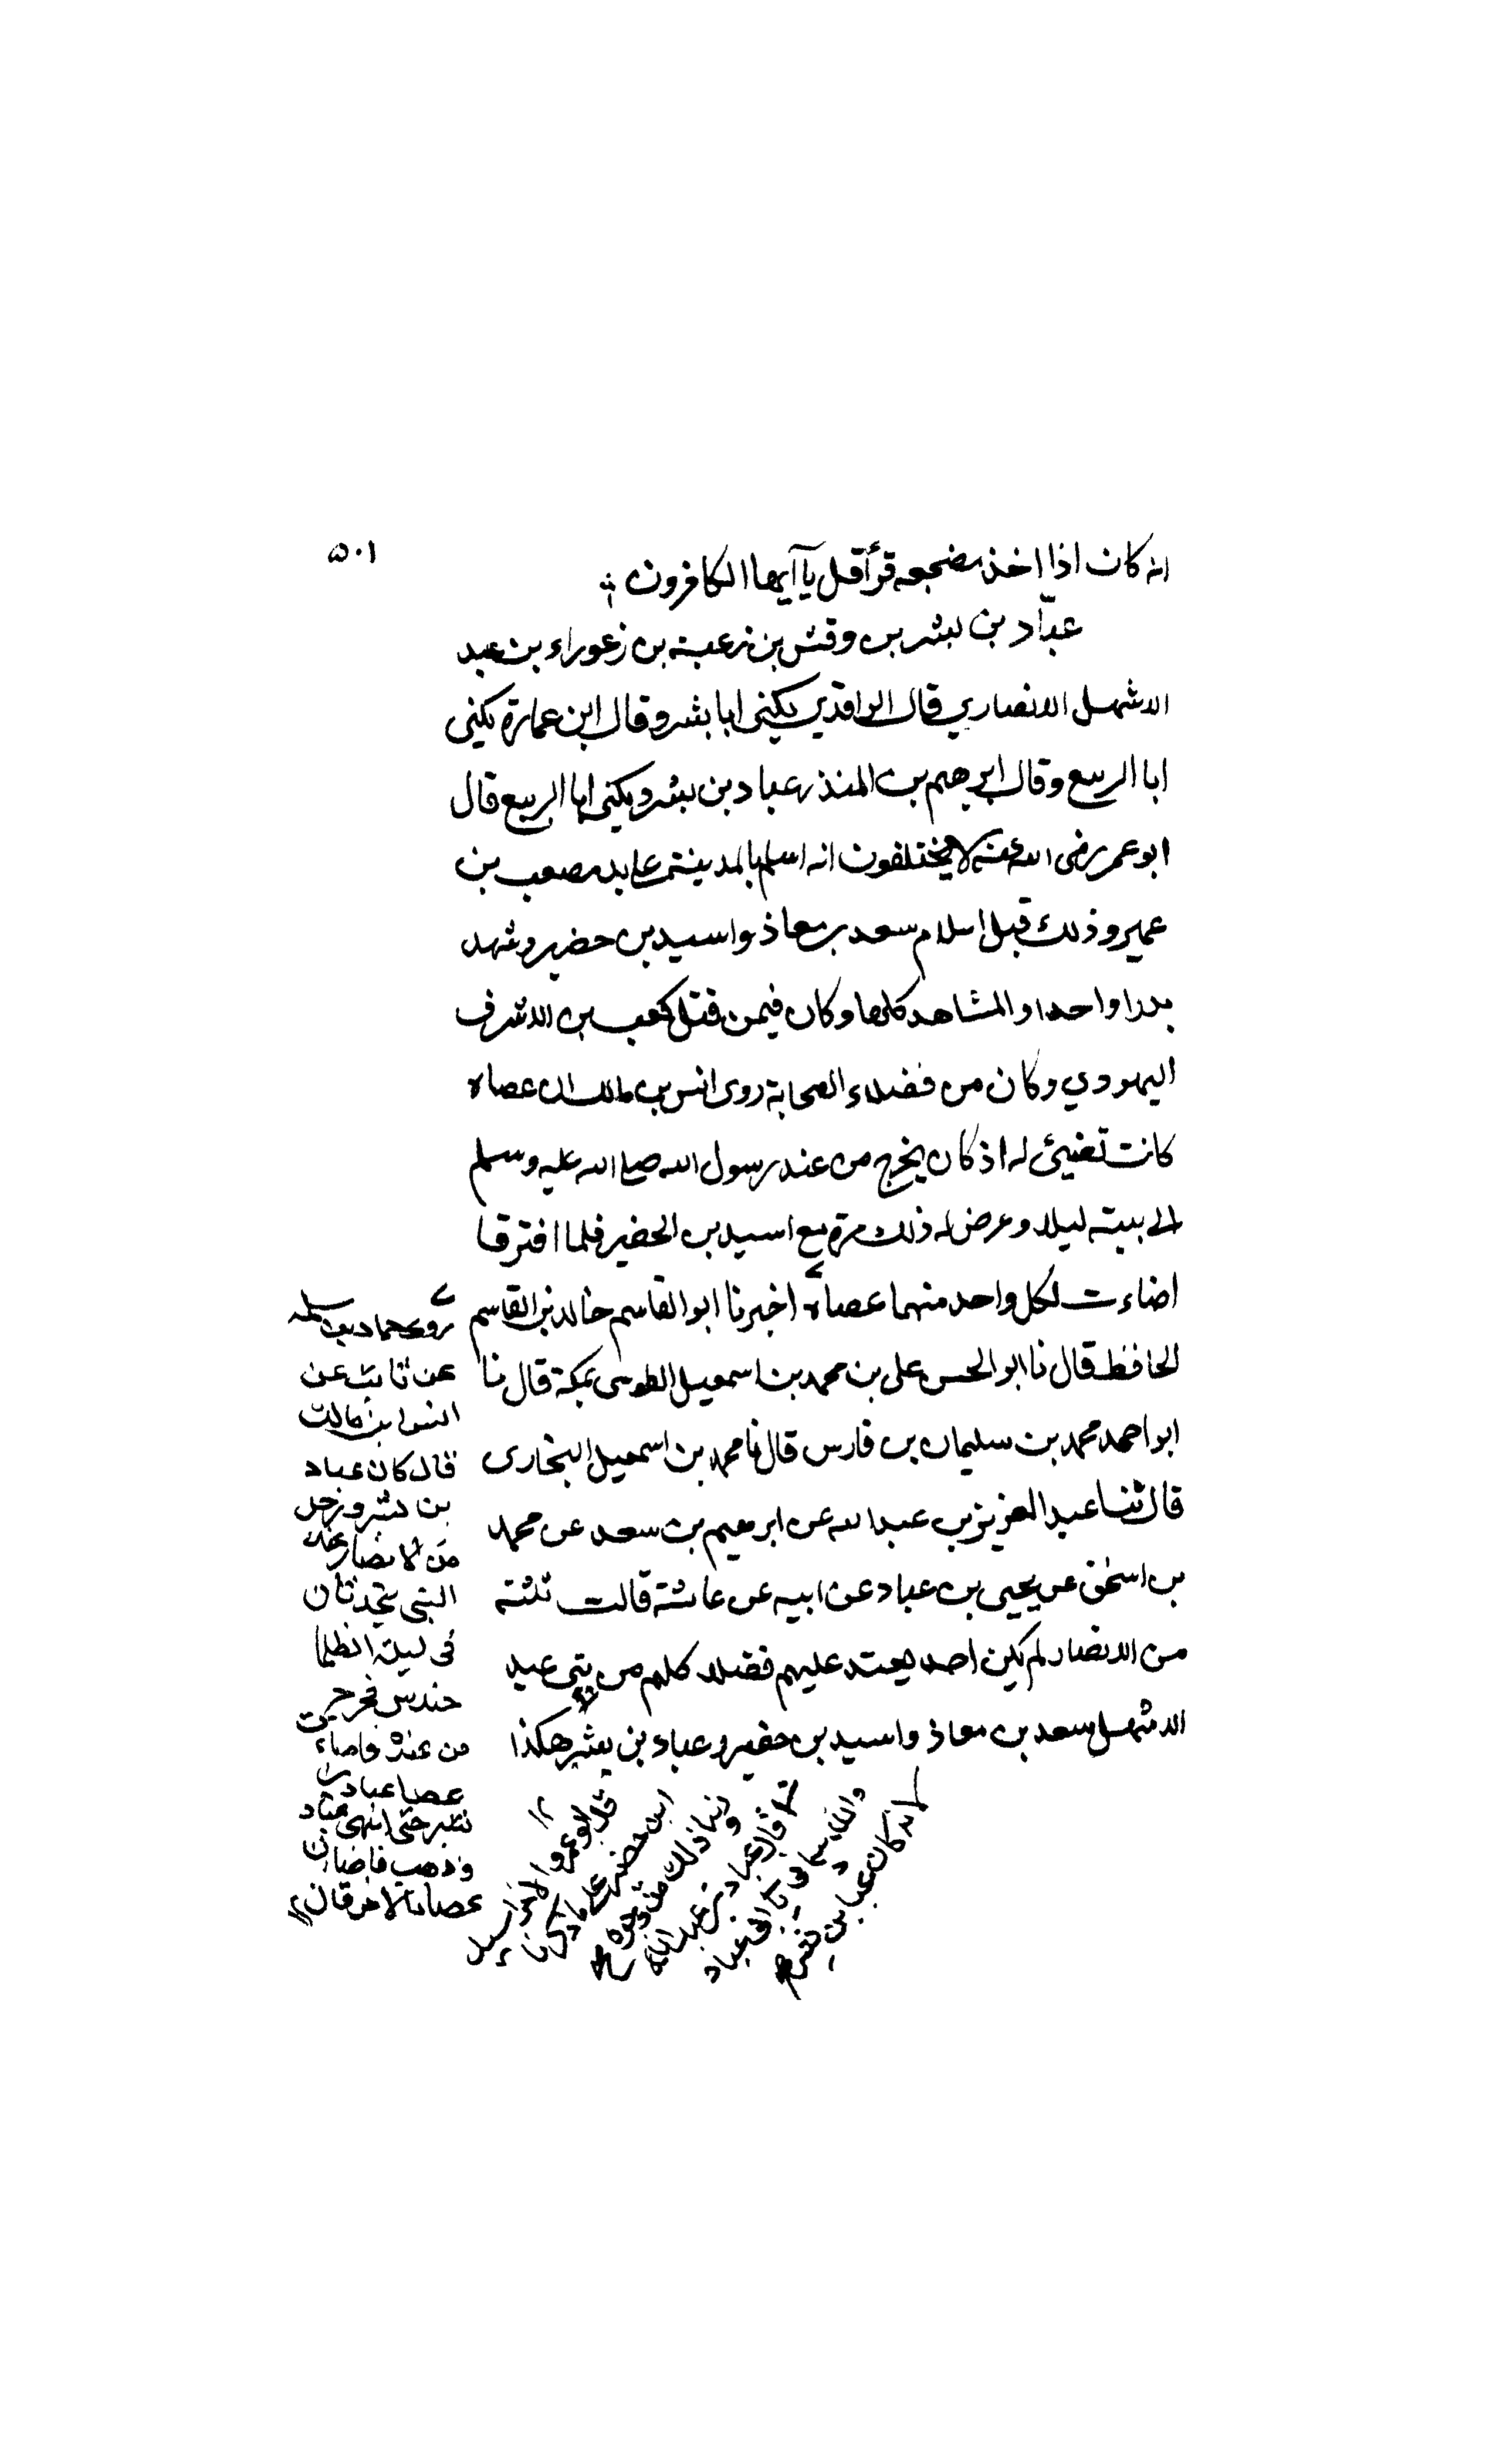 ٥٠١
انه كان اذا اخذ مضجعه قرأ قل يا آيها الكافرون
عبّاد بن بشر بن وقش بن زعبة بن زعوراء بن عبد
الاشهل الانصاري قال الواقدي يكنى ابا بشر وقال ابن عمارة يكنى
ابا الربيع وقال ابرهيم بن المنذر عباد بن بشر ويكنى ابا الربيع قال
ابو عمر رضى الله عنه لا يختلفون انه اسلم بالمدينة على يد مصعب بن
عمير وذلك قبل اسلام سعد بن معاذ واسيد بن حضير وشهد
بدرا واحدا و المشاهد كلها وكان فيمن قتل كعب بن الاشرف
اليهودي وكان من فضلاء الصحابة روى انس بن مالك ان عصاه
كانت تضيئ له اذ كان يخرج من عند رسول الله صلى الله عليه وسلم
الى بيته ليلا وعرض له ذلك مرة مع اسيد بن الحضير فلما افترقا
اضاءت لكل واحد منهما عصاه اخبرنا ابو القاسم خالد بن القاسم
الحافظ قال نا ابو الحسن على بن محمد بن اسمعيل الطوسى بمكة قال نا
ابو احمد محمد بن سليمان بن فارس قال نا محمد بن اسمعيل البخارى
قال ثنا عبد العزيز بن عبد الله عن ابرهيم بن سعد عن محمد
بن اسحق عن يحيى بن عباد عن ابيه عن عائشة قالت ثلثة
من الانصار لم يكن احد يعتد عليهم فضلا كلهم من بنى عبد
الاشهل سعد بن معاذ واسيد بن حضير وعباد بن بشر هكذا
روى حماد بن سلمه
عن ثابت عن
انس بن مالك
قال كان عباد
بن بشر ورجل
من الانصار عند
النبى يتحدثان
فى ليلة الظلما
حندس فخرجت
من عنده فاضاء
عصا عباد بن
بشر حتى انتهى عباد
وذهب فاضاءت
عصا الاخر قال
انه كان عباد بن بشر
والله سمانى عباد
قال عباد بن عبد الله
ذلك من وجوه
ابن حضير على ما ذكرنا
قال ابو عمر والاخر اسيد
١٢